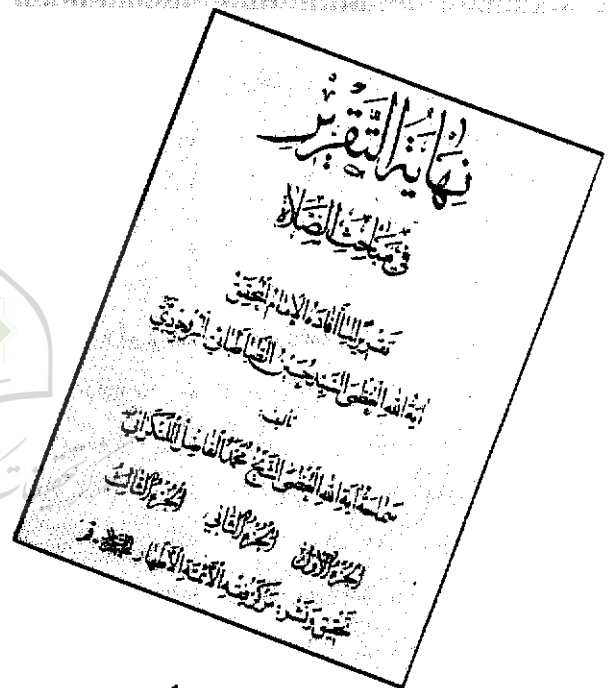 نهاية التقرير
في مباحث الصلاة
تقرير لما أفاده الإمام المحقق
آية الله العظمى السيد حسين الطباطبائي البروجردي
تأليف
سماحة آية الله العظمى الشيخ محمد الفاضل اللنكراني
الجزء الأول الجزء الثاني الجزء الثالث
تحقيق ونشر: مركز فقه الأئمة الأطهار قم